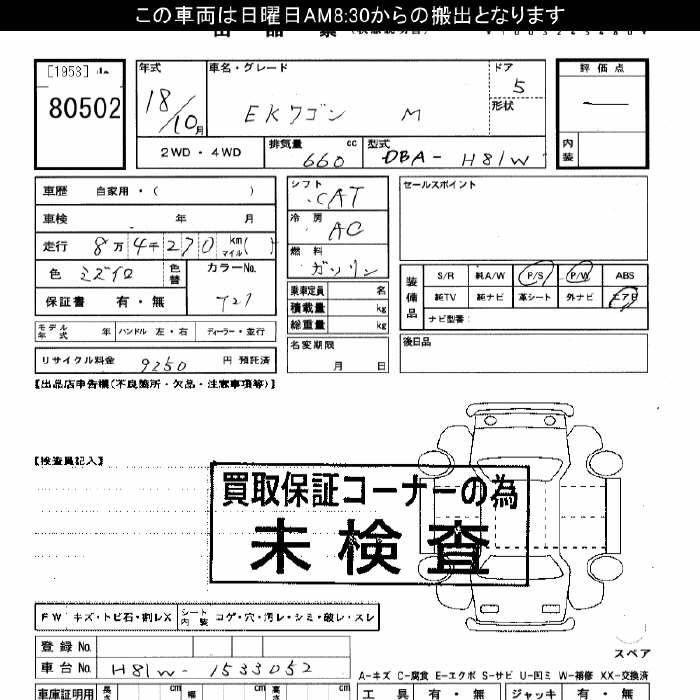 この車両は日曜日AM8:30からの搬出となります
出品票
[1953]
80502
年式
18/10月
車名・グレード
EKワゴン M
ドア
5
形状
評価点
内装
2WD・4WD
排気量 660 cc
型式 DBA-H81W
車歴 自家用・( )
車検 年 月
走行 8万4千270 km マイル( )
色 ミズイロ
色替
カラーNo. T27
保証書 有・無
シフト CAT
冷房 AC
燃料 ガソリン
乗車定員 名
積載量 kg
総重量 kg
セールスポイント
装備品
S/R 純A/W P/S P/W ABS
純TV 純ナビ 革シート 外ナビ エアB
ナビ型番:
モデル年式 年 ハンドル 左・右 ディーラー・並行
名変期限 月 日
後日品
リサイクル料金 9250 円 預託済
【出品店申告欄(不良箇所・欠品・注意事項等)】
【検査員記入】
買取保証コーナーの為
未検査
FW キズ・トビ石・割レX
シート内装 コゲ・穴・汚レ・シミ・破レ・スレ
登録No.
車台No. H81W-1533052
スペア
A-キズ C-腐食 E-エクボ S-サビ U-凹ミ W-補修 XX-交換済
車庫証明用 長さ cm 幅 cm 高さ cm
工具 有・無 ジャッキ 有・無